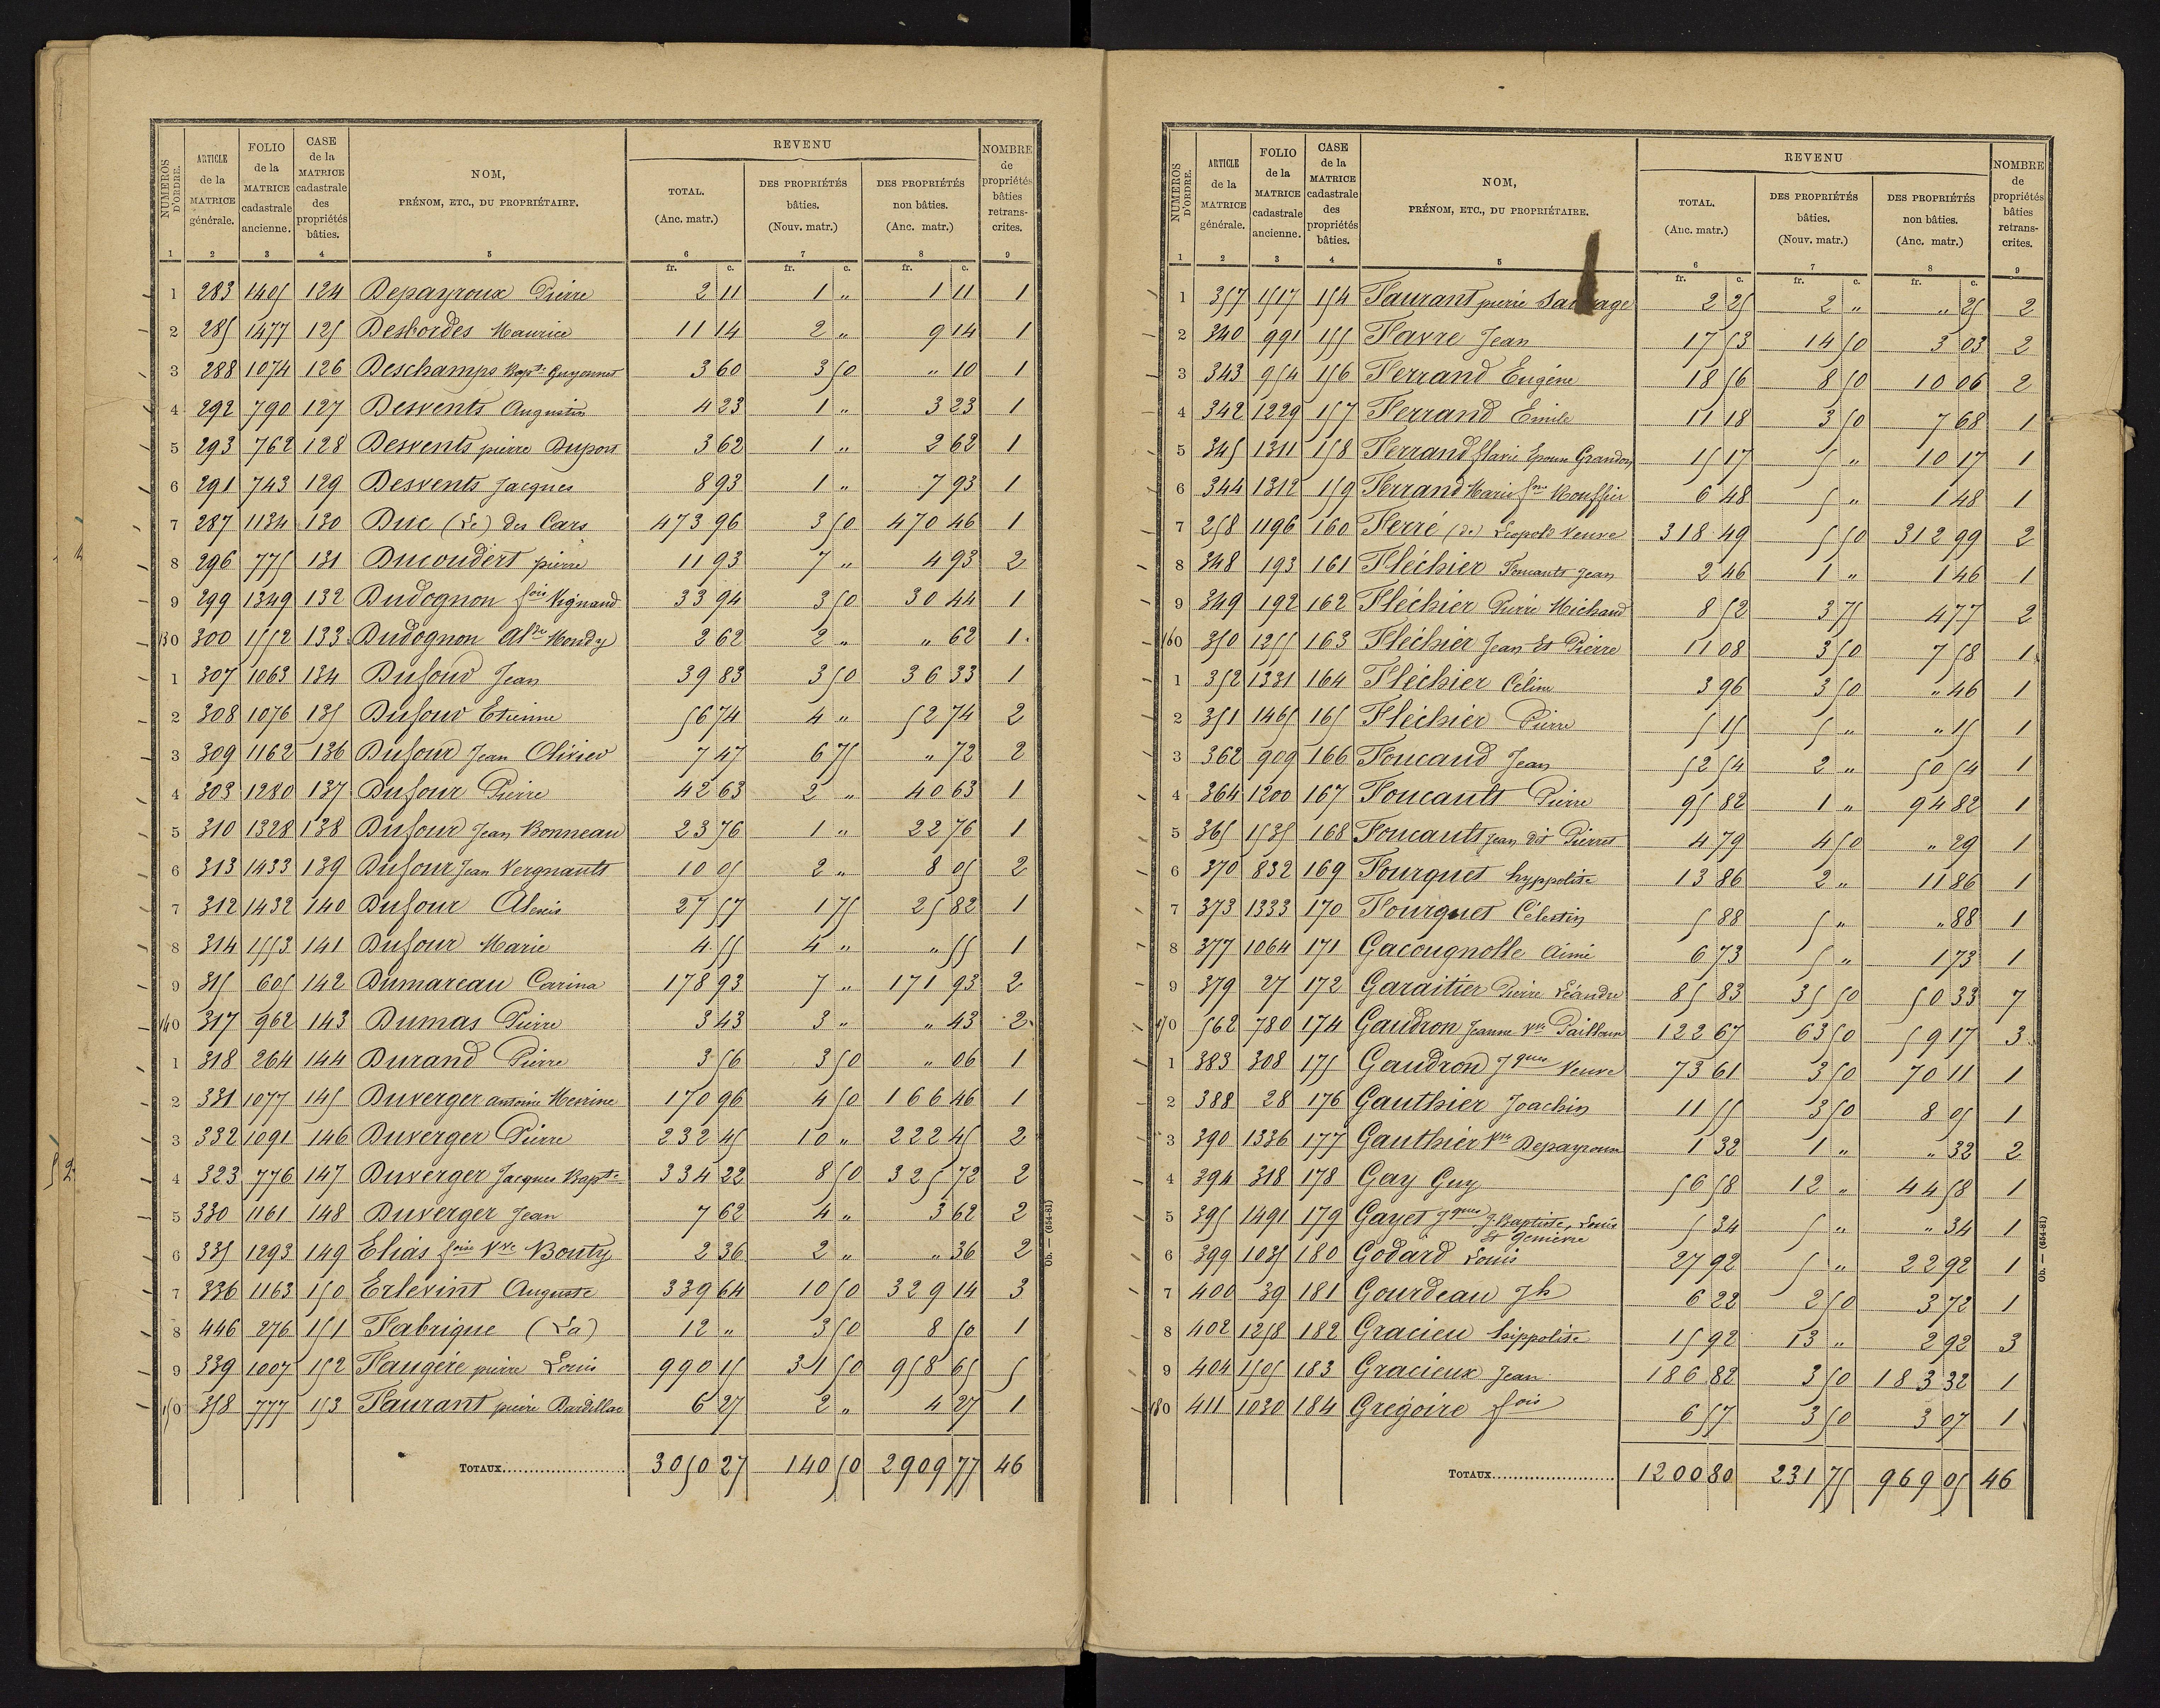 NUMÉROS D'ORDRE. ARTICLE de la MATRICE générale. FOLIO de la MATRICE cadastrale ancienne. CASE de la MATRICE cadastrale des propriétés bâties. NOM, PRÉNOM, ETC., DU PROPRIÉTAIRE. REVENU TOTAL. (Anc. matr.) DES PROPRIÉTÉS bâties. (Nouv. matr.) DES PROPRIÉTÉS non bâties. (Anc. matr.) NOMBRE de propriétés bâties retrans- crites.
1 2 3 4 5 6 7 8 9
fr. c. fr. c. fr. c.
1 283 1405 124 Depayroux Pierre 2 11 1 " 1 11 1
2 285 1477 125 Desbordes Maurice 11 14 2 " 9 14 1
3 288 1074 126 Deschamps Bapte Guyonnet 3 60 3 50 " 10 1
4 292 790 127 Desvents Augustin 4 23 1 " 3 23 1
5 293 762 128 Desvents pierre Dupont 3 62 1 " 2 62 1
6 291 743 129 Desvents Jacques 8 93 1 " 7 93 1
7 287 1134 130 Duc (Le) des Cars 473 96 3 50 470 46 1
8 296 775 131 Ducoudert pierre 11 93 7 " 4 93 2
9 299 1349 132 Dudognon fois Vignaud 33 94 3 50 30 44 1
130 300 1552 133 Dudognon Aldre Mondy 2 62 2 " " 62 1
1 307 1063 134 Dufour Jean 39 83 3 50 36 33 1
2 308 1076 135 Dufour Etienne 56 74 4 " 52 74 2
3 309 1162 136 Dufour Jean Olivier 7 47 6 75 " 72 2
4 303 1280 137 Dufour Pierre 42 63 2 " 40 63 1
5 310 1328 138 Dufour Jean Bonneau 23 76 1 " 22 76 1
6 313 1433 139 Dufour Jean Vergnauts 10 05 2 " 8 05 2
7 312 1432 140 Dufour Alexis 27 57 1 75 25 82 1
8 314 1553 141 Dufour Marie 4 55 4 " " 55 1
9 315 605 142 Dumareau Carina 178 93 7 " 171 93 2
140 317 962 143 Dumas Pierre 3 43 3 " " 43 2
1 318 264 144 Durand Pierre 3 56 3 50 " 06 1
2 331 1077 145 Duverger antoine Merine 170 96 4 50 166 46 1
3 332 1091 146 Duverger Pierre 232 45 10 " 222 45 2
4 323 776 147 Duverger Jacques Bapte 334 22 8 50 325 72 2
5 330 1161 148 Duverger Jean 7 62 4 " 3 62 2
6 335 1293 149 Eliás foise Vve Bouty 2 36 2 " " 36 2
7 336 1163 150 Erlevint Auguste 339 64 10 50 329 14 3
8 446 276 151 Fabrique (La) 12 " 3 50 8 50 1
9 339 1007 152 Faugére pierre Louis 990 15 31 50 958 65 5
150 358 777 153 Faurant pierre Bardillac 6 27 2 " 4 27 1
TOTAUX 3050 27 140 50 2909 77 46
Ob. — (654-81)
52
NUMÉROS D'ORDRE. ARTICLE de la MATRICE générale. FOLIO de la MATRICE cadastrale ancienne. CASE de la MATRICE cadastrale des propriétés bâties. NOM, PRÉNOM, ETC., DU PROPRIÉTAIRE. REVENU TOTAL. (Anc. matr.) DES PROPRIÉTÉS bâties. (Nouv. matr.) DES PROPRIÉTÉS non bâties. (Anc. matr.) NOMBRE de propriétés bâties retrans- crites.
1 2 3 4 5 6 7 8 9
fr. c. fr. c. fr. c.
1 357 1517 154 Faurant pierre Sauvage 2 25 2 " " 25 2
2 340 991 155 Favre Jean 17 53 14 50 3 03 2
3 343 954 156 Ferrand Eugène 18 56 8 50 10 06 2
4 342 1229 157 Ferrand Emile 11 18 3 50 7 68 1
5 345 1311 158 Ferrand flavie Epoux Grandon 15 17 5 " 10 17 1
6 344 1312 159 Ferrand Marie fme Mouffier 6 48 5 " 1 48 1
7 258 1196 160 Ferré (de) Leopold Veuve 318 49 5 50 312 99 2
8 348 193 161 Fléchier Foucants Jean 2 46 1 " 1 46 1
9 349 192 162 Fléchier Pierre Michaud 8 52 3 75 4 77 2
160 350 1255 163 Fléchier Jean Et Pierre 11 08 3 50 7 58 1
1 352 1331 164 Fléchier Céline 3 96 3 50 " 46 1
2 351 1465 165 Fléchier Pierre 5 15 5 " " 15 1
3 362 909 166 Foucaud Jean 52 54 2 " 50 54 1
4 364 1200 167 Foucants Pierre 95 82 1 " 94 82 1
5 365 1535 168 Foucants Jean dit Pierret 4 79 4 50 " 29 1
6 370 832 169 Fourquet hyppolite 13 86 2 " 11 86 1
7 373 1333 170 Fourquet Célestin 5 88 5 " " 88 1
8 377 1064 171 Gacougnolle Aimé 6 73 5 " 1 73 1
9 379 27 172 Garaitier Pierre Léandre 85 83 35 50 50 33 7
170 562 780 174 Gaudron Jeanne Vve Pailloux 122 67 63 50 59 17 3
1 383 308 175 Gaudron Jques Veuve 73 61 3 50 70 11 1
2 388 28 176 Gauthier Joachin 11 55 3 50 8 05 1
3 390 1336 177 Gauthier Vve Depayroux 1 32 1 " " 32 2
4 394 318 178 Gay Guy 56 58 12 " 44 58 1
5 395 1491 179 Gayet Jques J. Baptiste, Louis Et Genieve 5 34 5 " " 34 1
6 399 1035 180 Godard Louis 27 92 5 " 22 92 1
7 400 39 181 Gourdeau Jh 6 22 2 50 3 72 1
8 402 1258 182 Gracieu hippolite 15 92 13 " 2 92 3
9 404 1505 183 Gracieux Jean 186 82 3 50 183 32 1
180 411 1030 184 Grégoire fois 6 57 3 50 3 07 1
TOTAUX 1200 80 231 75 969 05 46
Ob. — (654-81)